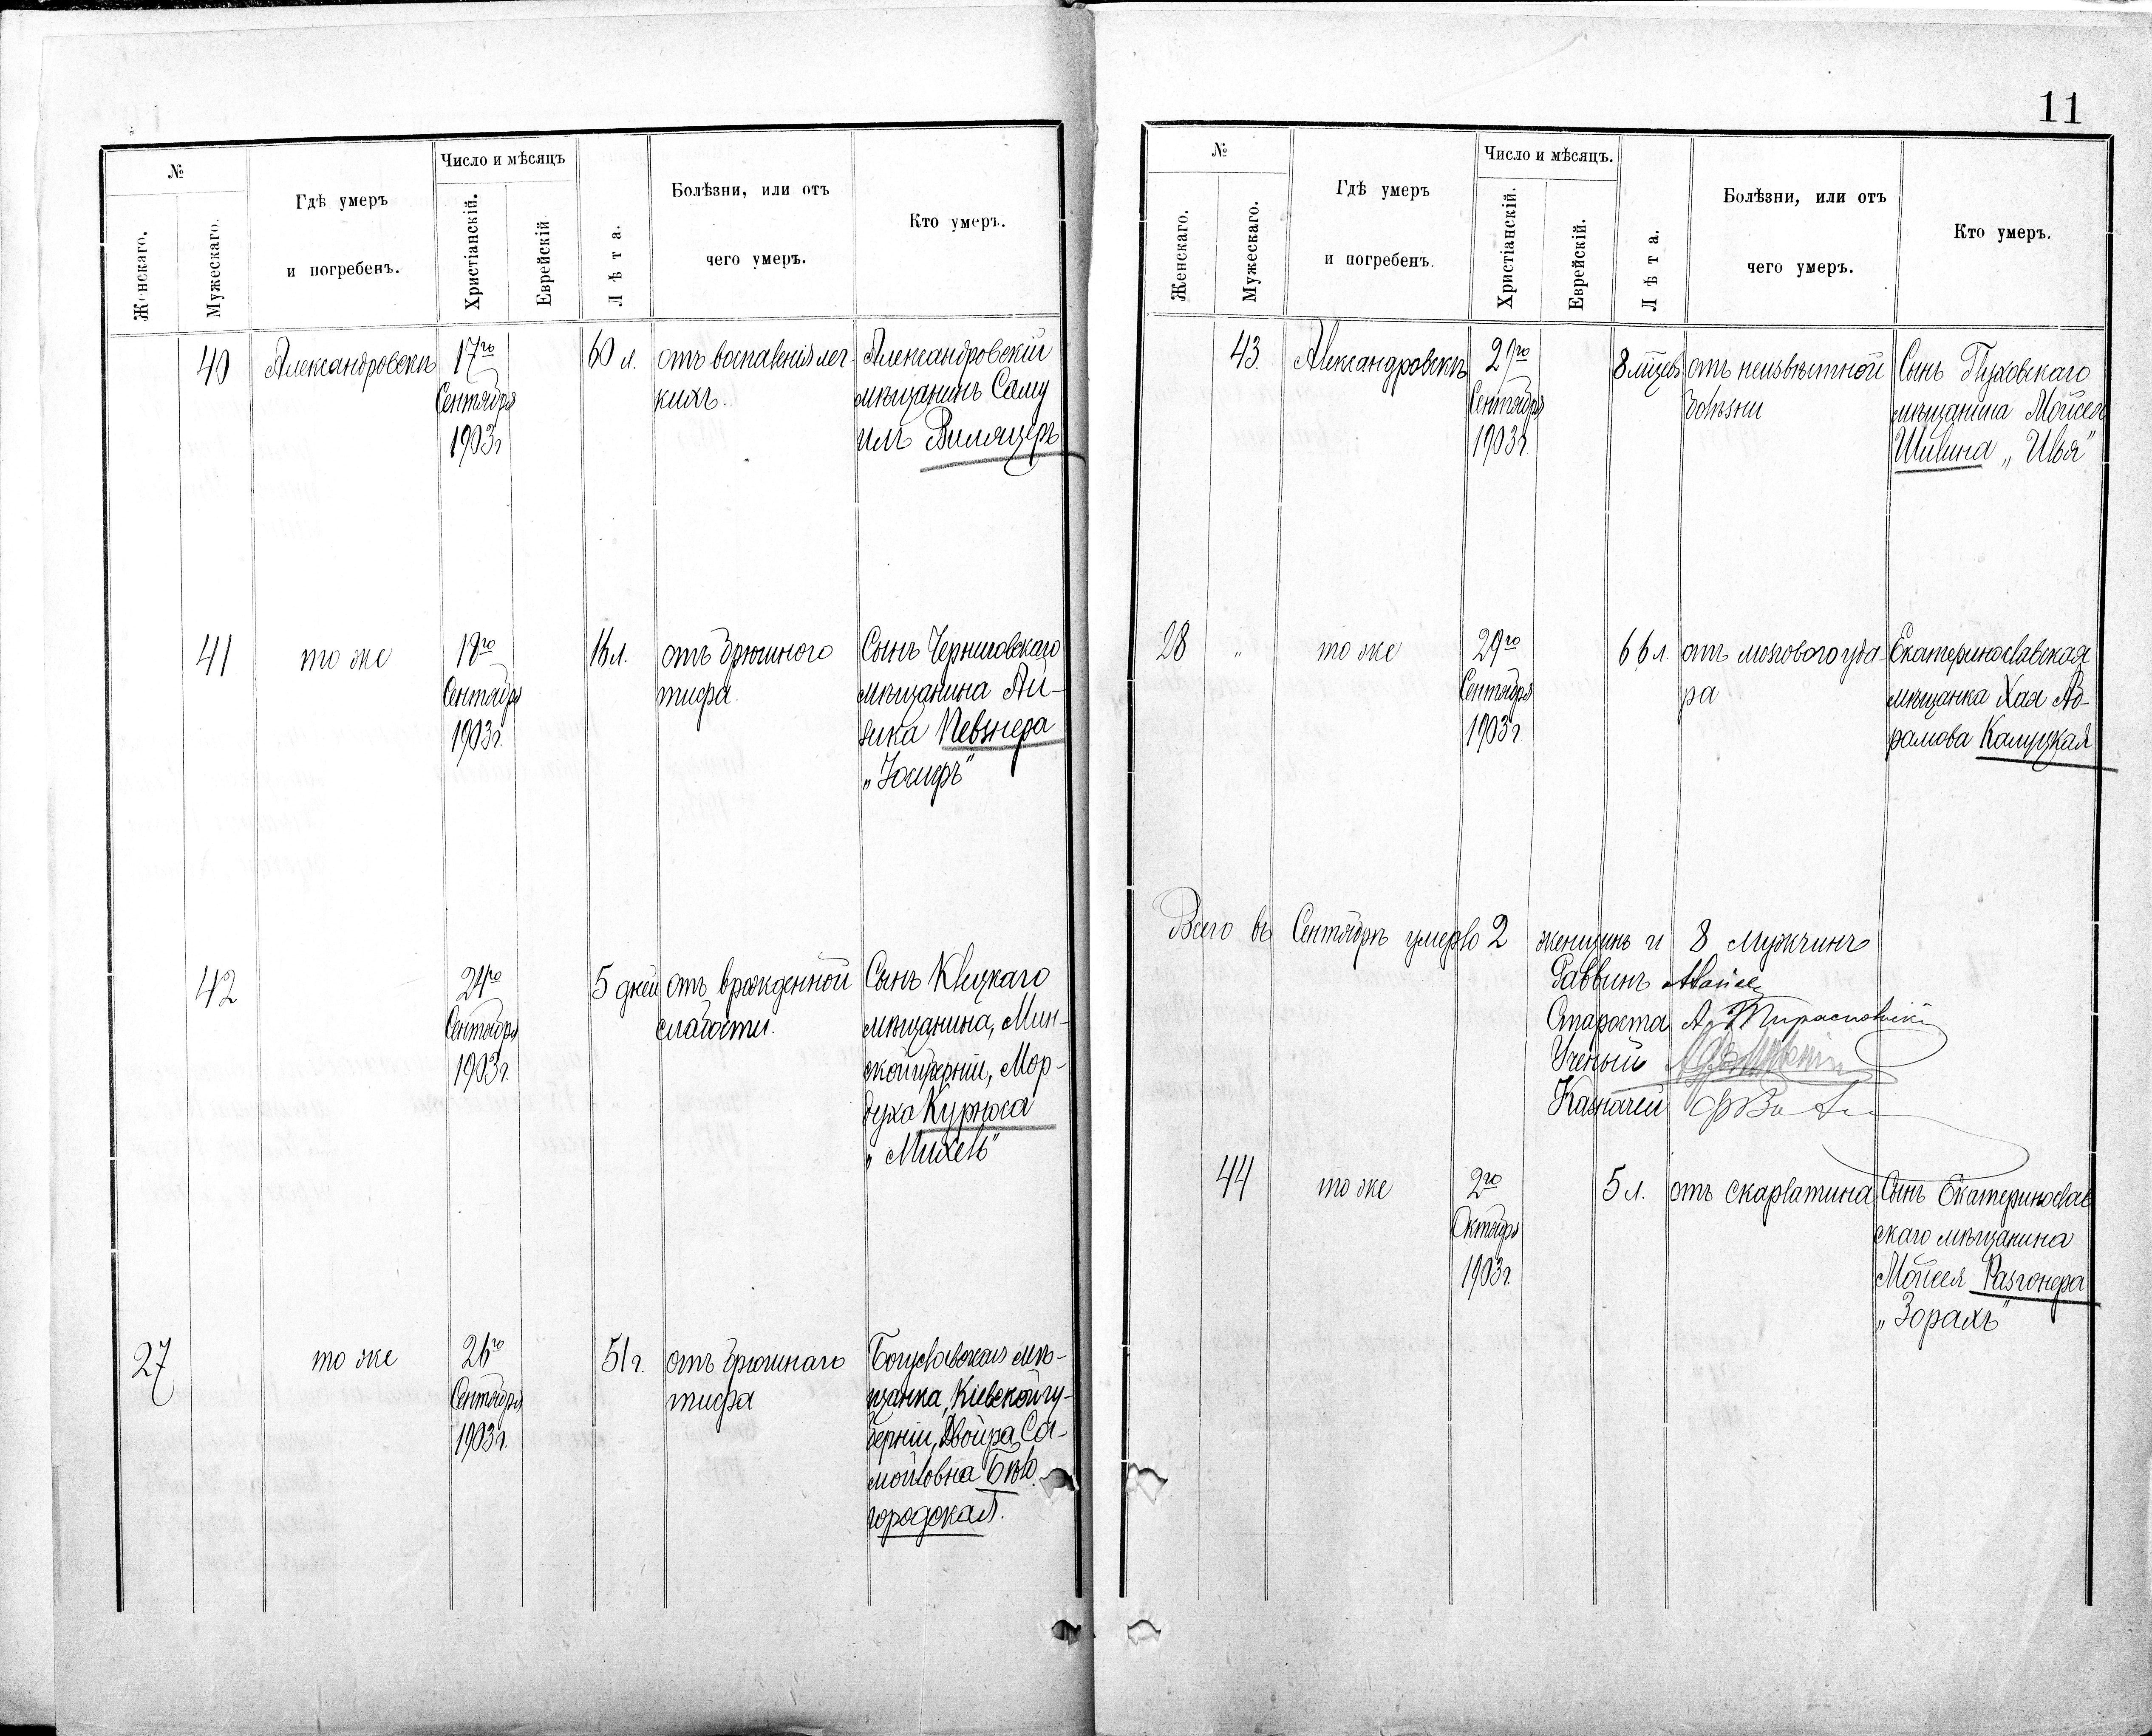 11
№
Женскаго.
Мужескаго.
Гдѣ умеръ
и погребенъ.
Число и мѣсяцъ
Христіанскій.
Еврейскій
Лѣта.
Болѣзни, или отъ
чего умеръ.
Кто умеръ.
40
Александровскъ
17го
Сентября
1903г
60 л.
отъ воспаленія лег-
кихъ.
Александровскій
мѣщанинъ Саму
илъ
41
то же
18го
Сентября
1903г.
отъ брюшного
тифа.
Сынъ Черниговскаго
мѣщанина Ай-
зика Певзнера
„Іосифъ"
42
24го
Сентября
1903г.
5 дней
отъ врожденной
слабости.
Сынъ Клецкаго
мѣщанина, Мин-
ской губерніи, Мор-
духа Курноса
„Михель"
27
то же
26го
Сентября
1903г.
51г.
отъ брюшнаго
тифа
Богуславская мѣ-
щанка, Кіевской гу-
берніи, Двойра Са-
мойловна Бѣло-
городская.
№
Женскаго.
Мужескаго.
Гдѣ умеръ
и погребенъ.
Число и мѣсяцъ.
Христіанскій.
Еврейскій.
Лѣта.
Болѣзни, или отъ
чего умеръ.
Кто умеръ.
43.
Александровскъ
29го
Сентября
1903г.
8 мѣсцевъ
отъ неизвѣстной
болѣзни
Сынъ Глуховскаго
мѣщанина Мойсея
Шивина „Илья"
28
„
то же
29го
Сентября
1903г.
66 л.
отъ мозгового уда-
ра
Екатеринославская
мѣщанка Хая Аб-
рамова Калуцкая
Всего въ Сентябрѣ умерло 2 женщинъ и 8 мужчинъ
Раввинъ
Староста А. Тираспольскій
Ученый
Казначей
44
то же
2го
Октября
1903г.
5 л.
отъ скарлатина
Сынъ Екатеринослав
скаго мѣщанина
Мойсея Разгонера
„Зорахъ"